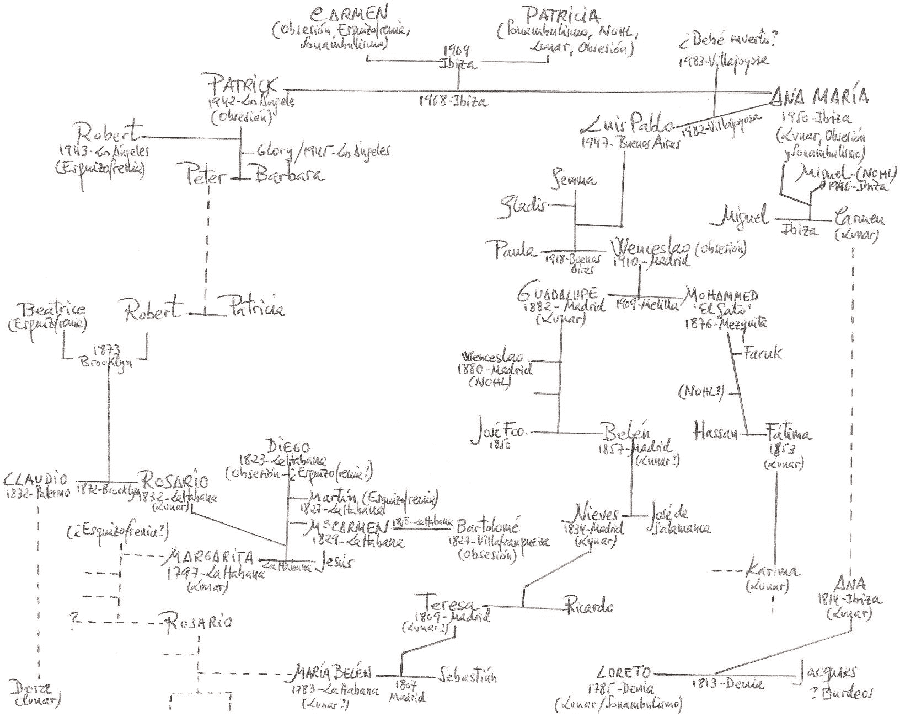 CARMEN
(Obsesión, Esquizofrenia,
Sonambulismo)
PATRICIA
(Sonambulismo, NOHL,
Lunar, Obsesión)
1969
Ibiza
¿Bebé muerto?
1983-Villajoyosa
PATRICK
1942-Los Ángeles
(Obsesión)
1968-Ibiza
ANA MARÍA
1950-Ibiza
(Lunar, Obsesión
y Sonambulismo)
Luis Pablo
1947-Buenos Aires
1982-Villajoyosa
Robert
1943-Los Ángeles
(Esquizofrenia)
Glory/1945-Los Ángeles
Peter
Barbara
Gemma
Gladis
Miguel-(NOHL)
Ibiza
Miguel
Ibiza
Carmen
(Lunar)
Paula
1918-Buenos
Aires
Wenceslao (Obsesión)
1910-Madrid
GUADALUPE
1882-Madrid
(Lunar)
1909-Melilla
MOHAMMED
"El Gato"
1876-Mezquita
Beatrice
(Esquizofrenia)
Robert
Patricia
1873
Brooklyn
Wenceslao
1880-Madrid
(NOHL)
Faruk
(NOHL?)
José Fco.
Belén
1857-Madrid
(Lunar?)
Hassan
Fátima
1853
(Lunar)
DIEGO
1823-La Habana
(Obsesión-¿Esquizofrenia?)
CLAUDIO
1832-Palermo
1872-Brooklyn
ROSARIO
1832-La Habana
(Lunar)
Martín (Esquizofrenia)
1827-La Habana
Mª CARMEN
1829-La Habana
La Habana
Bartolomé
1827-Villafranqueza
(Obsesión)
Nieves
1834-Madrid
(Lunar)
José de
Salamanca
(¿Esquizofrenia?)
MARGARITA
1797-La Habana
(Lunar)
La Habana
Jesús
Karima
(Lunar)
ANA
1814-Ibiza
(Lunar)
Teresa
1809-Madrid
(Lunar?)
Ricardo
?
ROSARIO
MARÍA BELÉN
1783-La Habana
(Lunar?)
1807
Madrid
Sebastián
LORETO
1785-Denia
(Lunar/Sonambulismo)
1813-Denia
Jacques
? Burdeos
(Lunar)